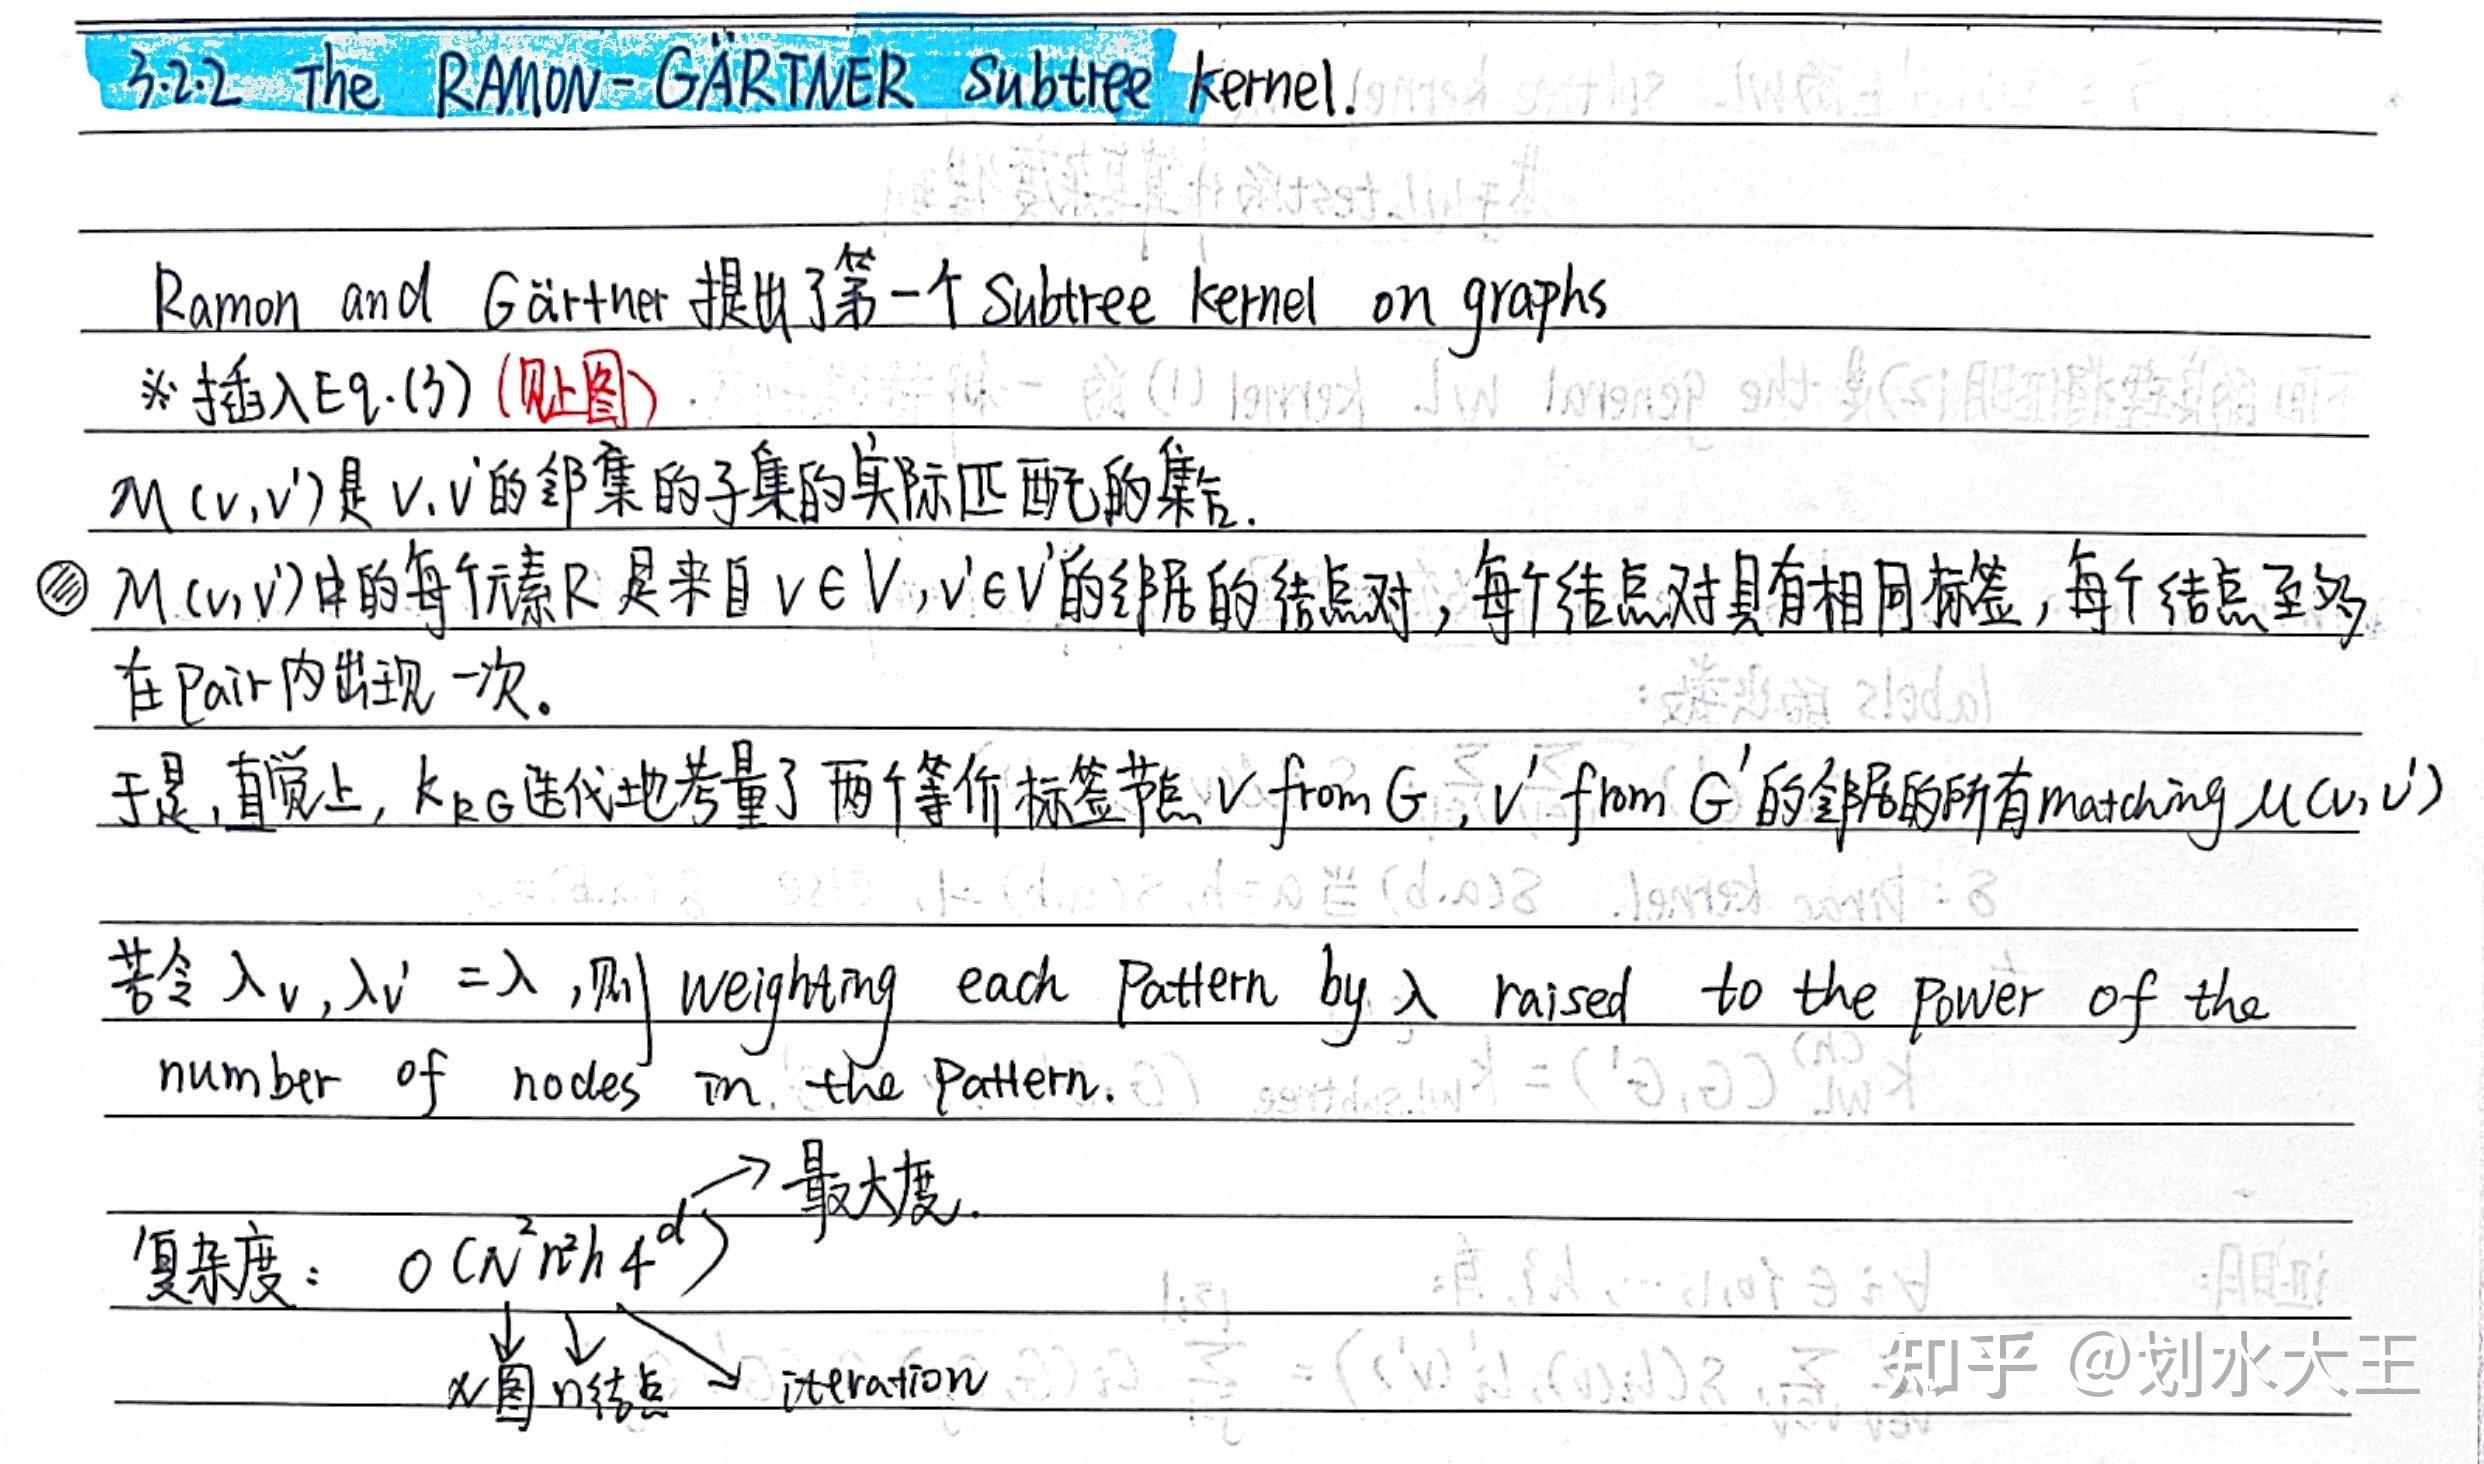 3.2.2 The RAMON-GÄRTNER Subtree kernel.
Ramon and Gärtner 提出了第一个 Subtree kernel on graphs
※ 插入Eq.(3) (见上图)
M(v,v')是 v.v'的邻集的子集的实际匹配的集合.
M(v,v')中的每个元素R 是来自 v∈V,v'∈V'的邻居的结点对,每个结点对具有相同标签,每个结点至多
在pair内出现一次。
于是,直觉上,k_RG迭代地考量了两个等价标签节点 v from G, v' from G'的邻居的所有matching M(v,v')
若令 λv,λv' = λ,则 weighting each pattern by λ raised to the power of the
number of nodes in the pattern.
最大度.
复杂度: O(N²n²h4^d)
N图 n结点 iteration
知乎 @划水大王